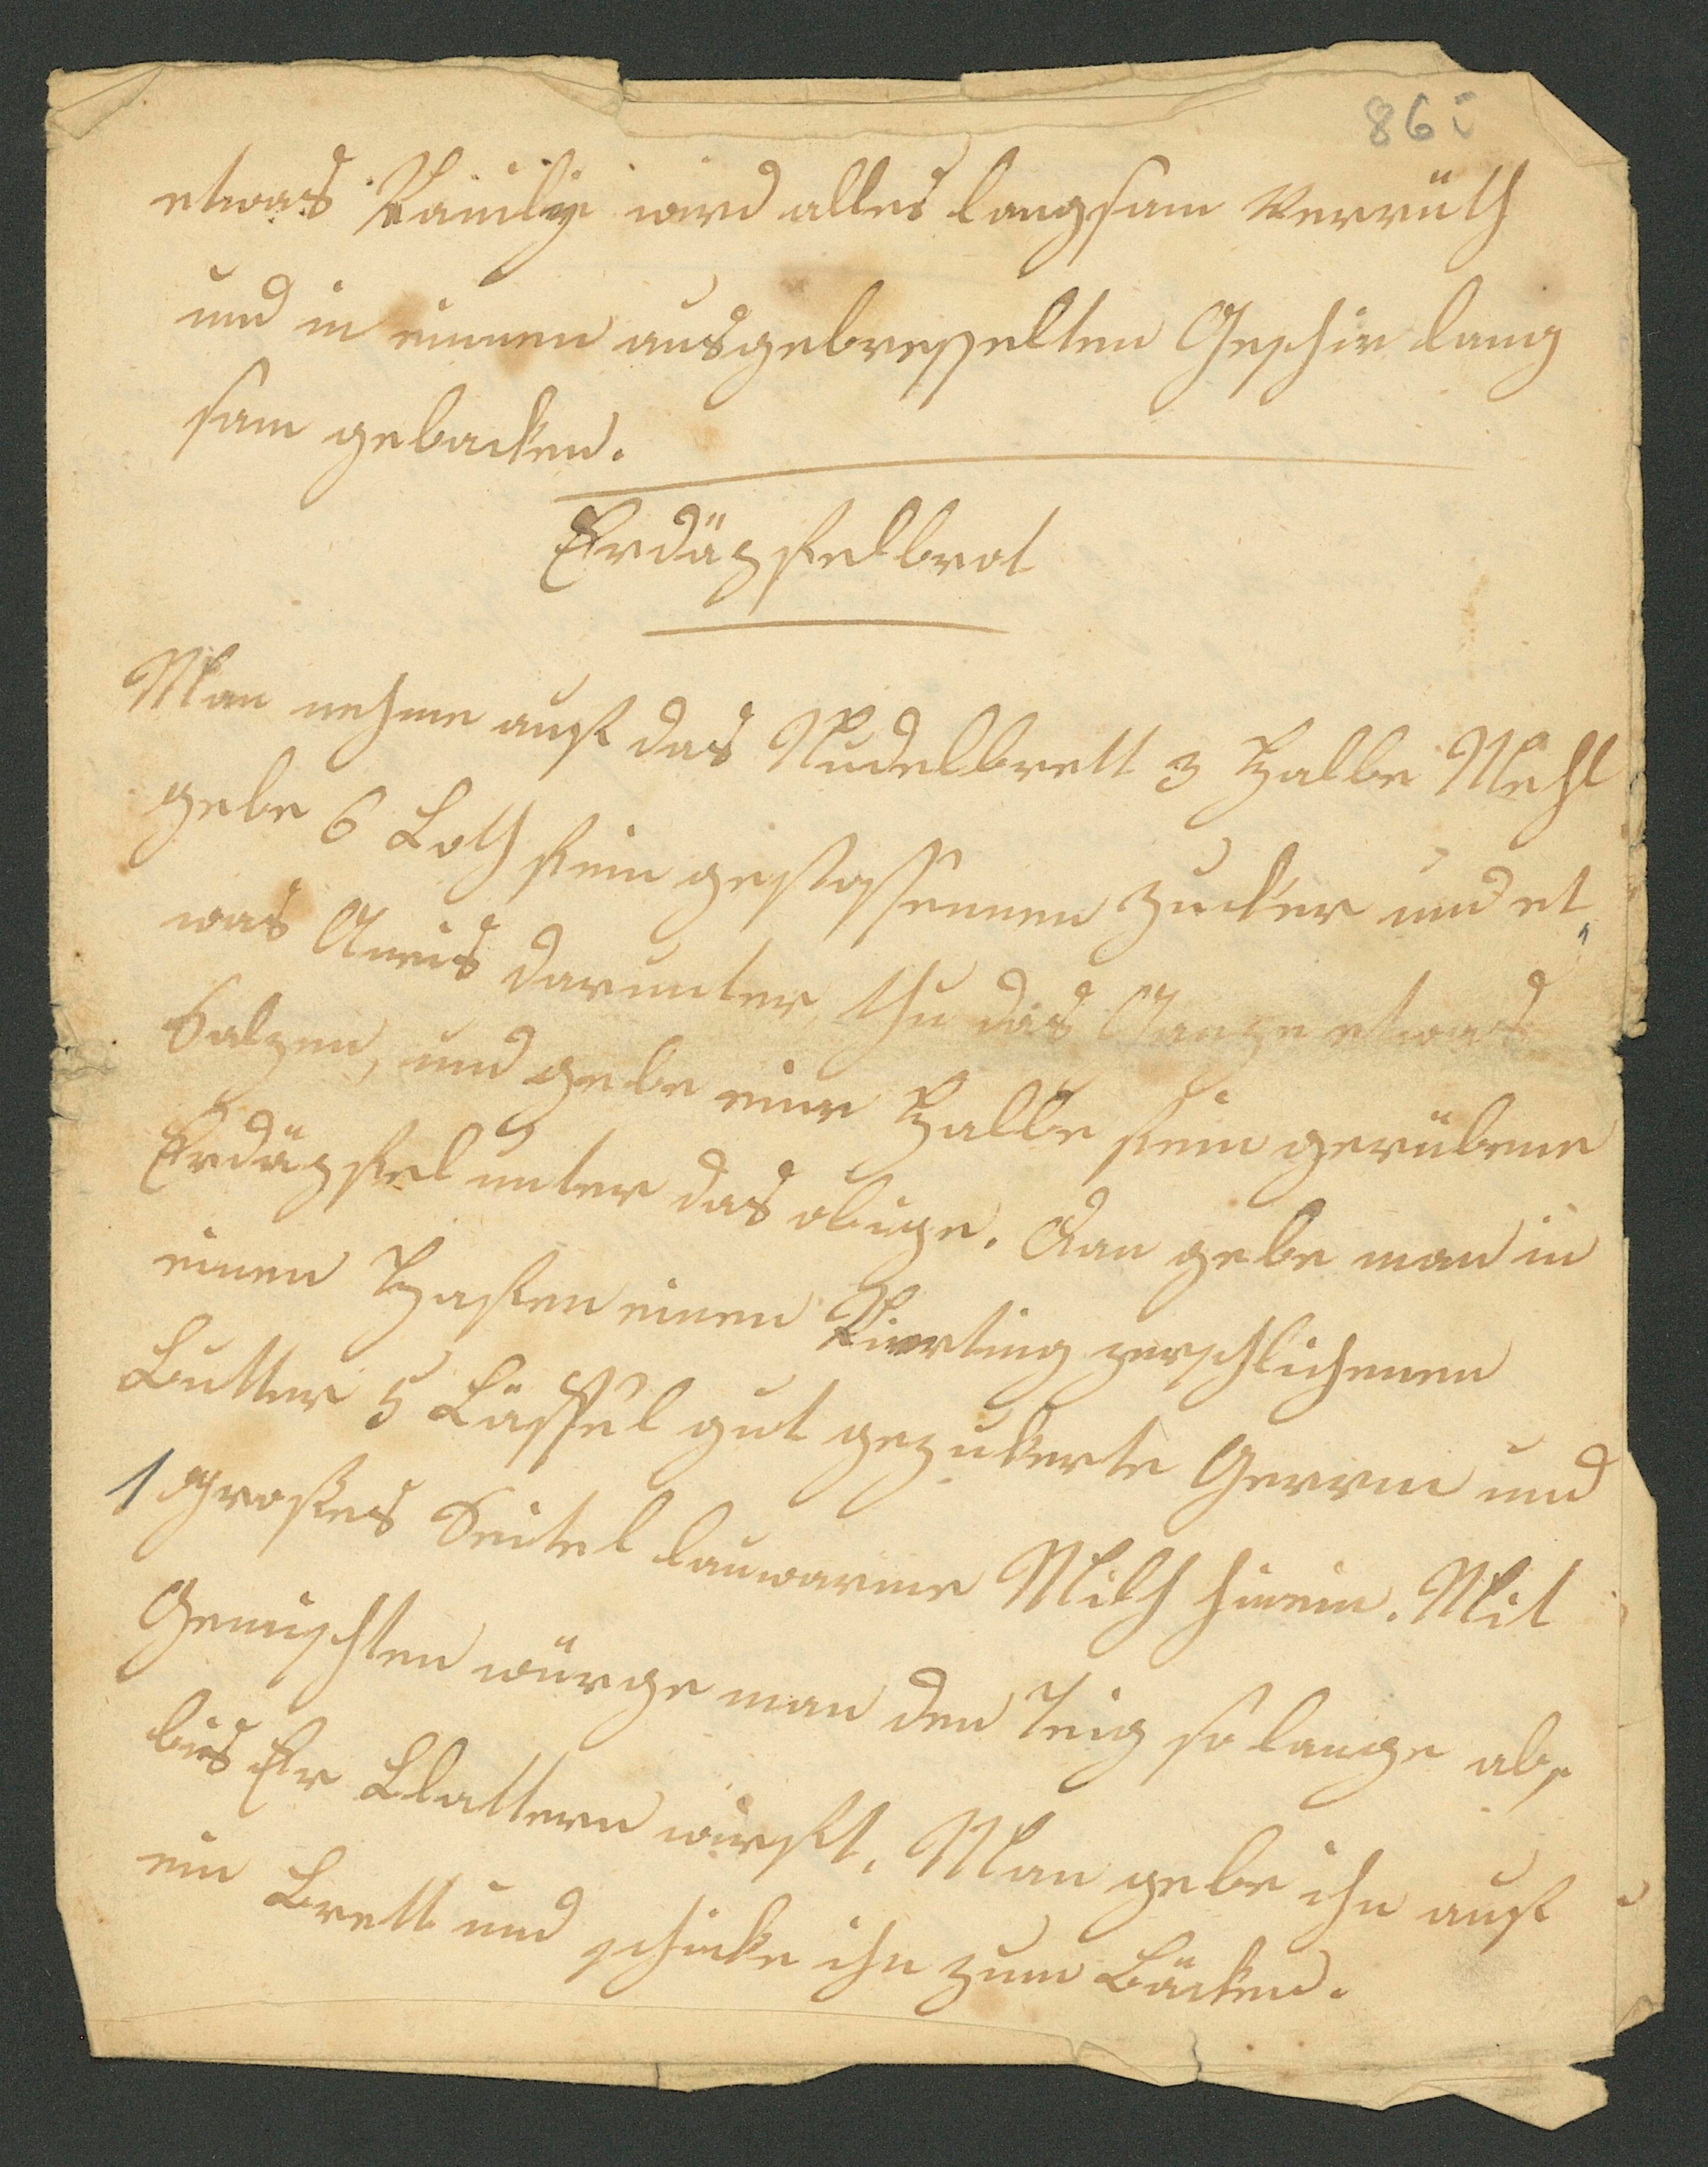 etwas wird alles langsam verrüth
und in einnen ausgebresselten Geschir lang
sam gebacken.
Erdäpfelbrot
Man nehme auf das Nudelbrett 3 Halbe Mehl
gebe 6 Loth fein gestossennen Zucker und et
was Aneis darunter, thu das Ganze etwas
Salzen, und gebe eine Halbe fein gerübene
Erdäpfel unter das obige. Dan gebe man in
einen Hafen einen Vierting zerschlichenen
Butter 5 Läffel gut gezukerte Gerrm und
1 Großes Seitel lauwarme Milch hinein. Mit
Gemischten würge man den Teig so lange ab,
bis Er Blattern wirft. Man gebe ihn auf
ein Brett und schicke ihn zum Bäcken.